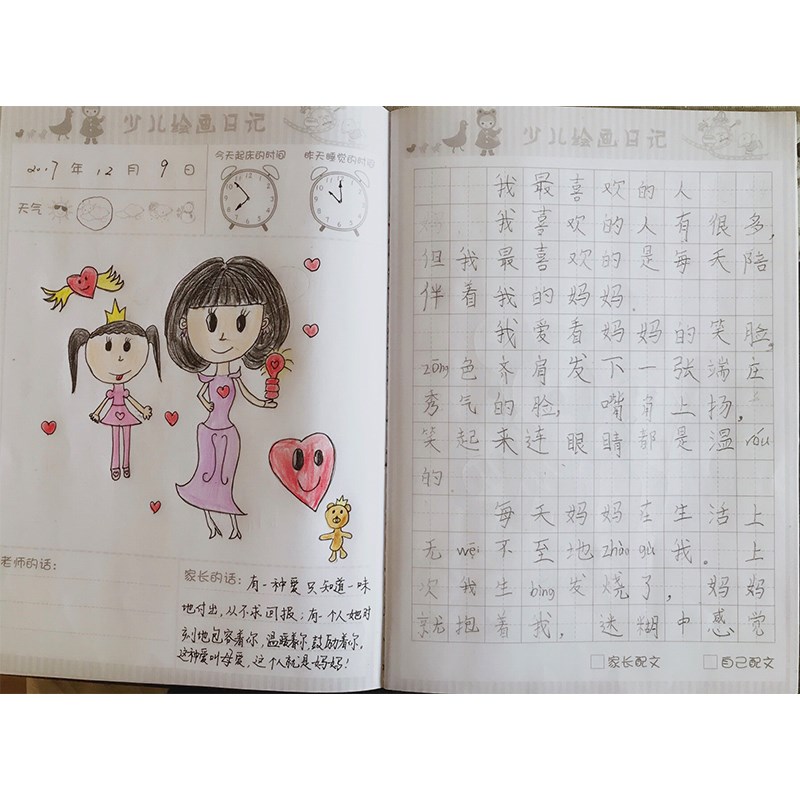 少儿绘画日记
2017年12月9日
今天起床的时间
昨天睡觉的时间
天气
老师的话:
家长的话:有一种爱只知道一味
地付出,从不求回报;有一个人她时
刻地包容着你,温暖着你,鼓励着你,
这种爱叫母爱,这个人就是妈妈!
少儿绘画日记
我最喜欢的人
我喜欢的人有很多,
但我最喜欢的是每天陪
伴着我的妈妈.
我爱看妈妈的笑脸,
zōng色齐肩发下一张端庄
秀气的脸,嘴角上扬,
笑起来连眼睛都是温róu
的
每天妈妈在生活上
无wēi不至地zhào gù我。上
次我生bìng发烧了,妈妈
就抱着我,迷糊中感觉
家长配文
自己配文